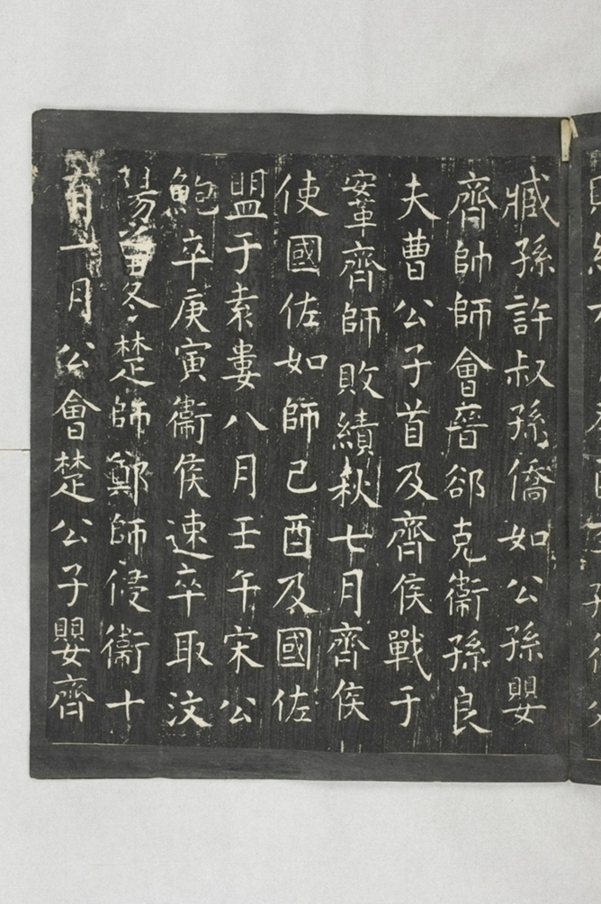 臧孫許叔孫僑如公孫嬰
齊帥師會晉郤克衞孫良
夫曹公子首及齊侯戰于
鞌齊師敗績秋七月齊侯
使國佐如師己酉及國佐
盟于袁婁八月壬午宋公
鮑卒庚寅衞侯速卒取汶
陽田冬楚師鄭師侵衞十
有一月公會楚公子嬰齊